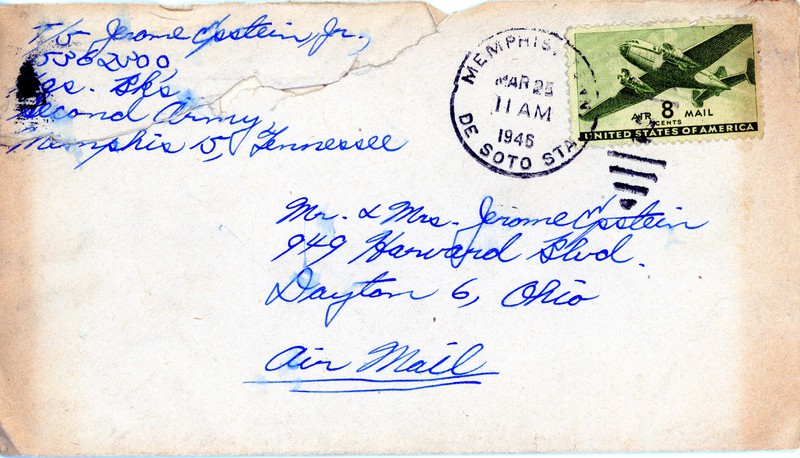 T/5 Jerome Epstein, Jr.,
Second Army,
Memphis 15, Tennessee
MEMPHIS,
MAR 25
11 AM
1946
DE SOTO STA.
AIR 8 MAIL
CENTS
UNITED STATES OF AMERICA
Mr. & Mrs. Jerome Epstein
949 Harvard Blvd.
Dayton 6, Ohio
Air Mail